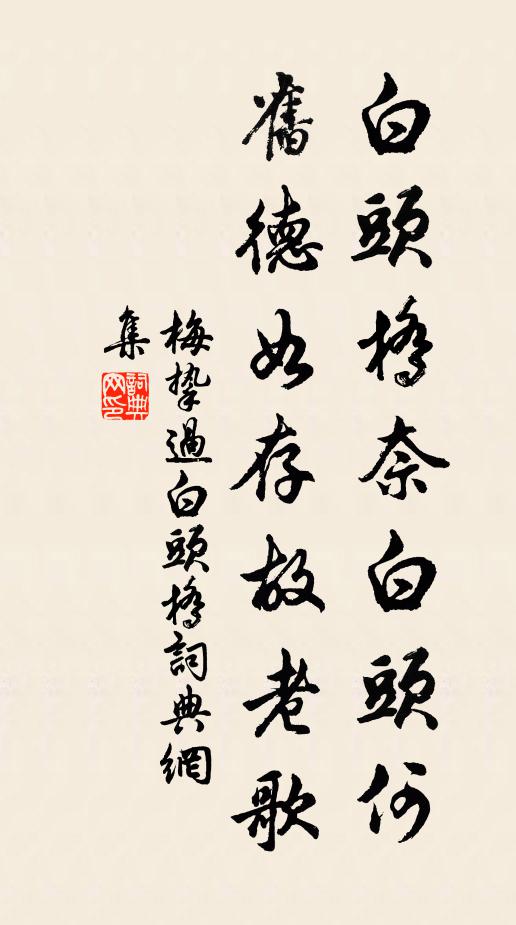 白頭橋奈白頭何
舊德如存故老歌
梅摯過白頭橋詞典網
集
詞典網印